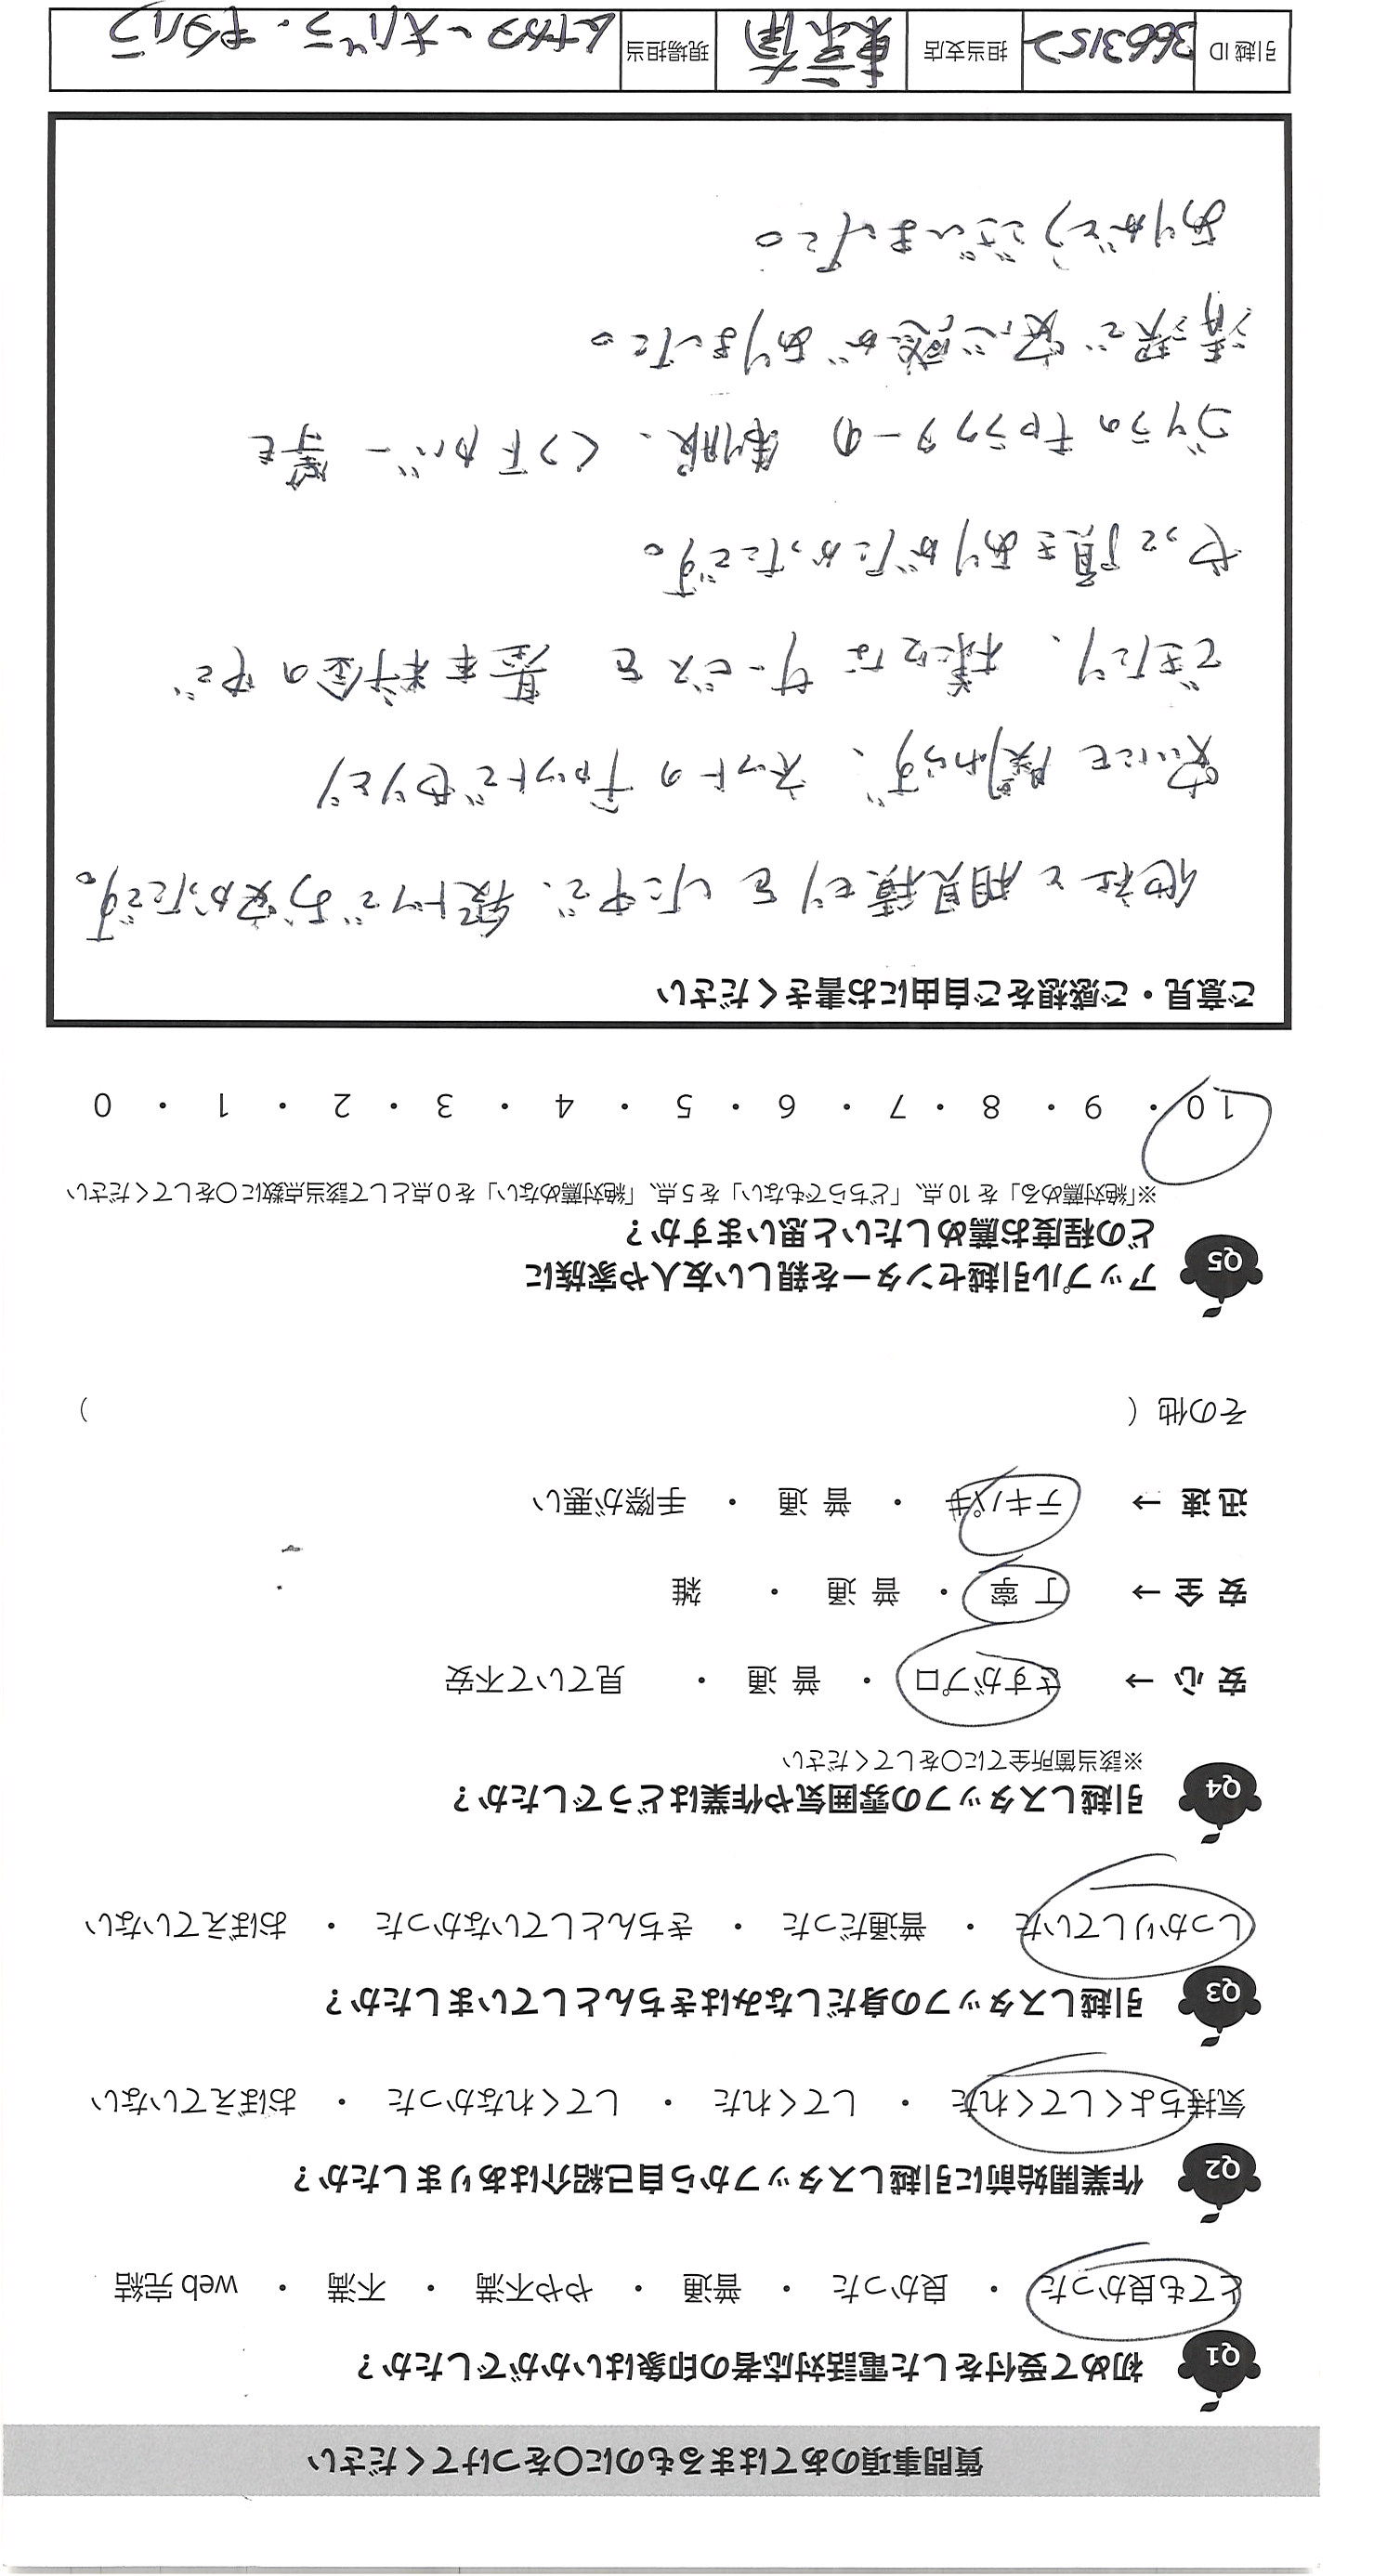 質問事項のあてはまるものに〇をつけてください
Q1 初めて受付をした電話対応者の印象はいかがでしたか？
とても良かった ・ 良かった ・ 普通 ・ やや不満 ・ 不満 ・ web 完結
Q2 作業開始前に引越しスタッフから自己紹介はありましたか？
気持ちよくしてくれた ・ してくれた ・ してくれなかった ・ おぼえていない
Q3 引越しスタッフの身だしなみはきちんとしていましたか？
しっかりしていた ・ 普通だった ・ きちんとしていなかった ・ おぼえていない
Q4 引越しスタッフの雰囲気や作業はどうでしたか？
※該当箇所全てに〇をしてください
安 心 → さすがプロ ・ 普 通 ・ 見ていて不安
安 全 → 丁 寧 ・ 普 通 ・ 雑
迅 速 → テキパキ ・ 普 通 ・ 手際が悪い
その他（ ）
Q5 アップル引越センターを親しい友人や家族に
どの程度お薦めしたいと思いますか？
※「絶対薦める」を 10 点、「どちらでもない」を 5 点、「絶対薦めない」を 0 点として該当点数に〇をしてください
10 ・ 9 ・ 8 ・ 7 ・ 6 ・ 5 ・ 4 ・ 3 ・ 2 ・ 1 ・ 0
ご意見・ご感想をご自由にお書きください
他社と相見積もりをした中で、段トツでお安かったです。
安いにも関わらず、ネットのチャットでやりとり
できたり、様々なサービスを 基本料金の中で
やって頂きありがたかったです。
ゴリラのキャラクターの 制服、くつ下カバー 等も
清潔で安心感がありました。
ありがとうございました。
引越 ID 3663152 担当支店 東京南 現場担当